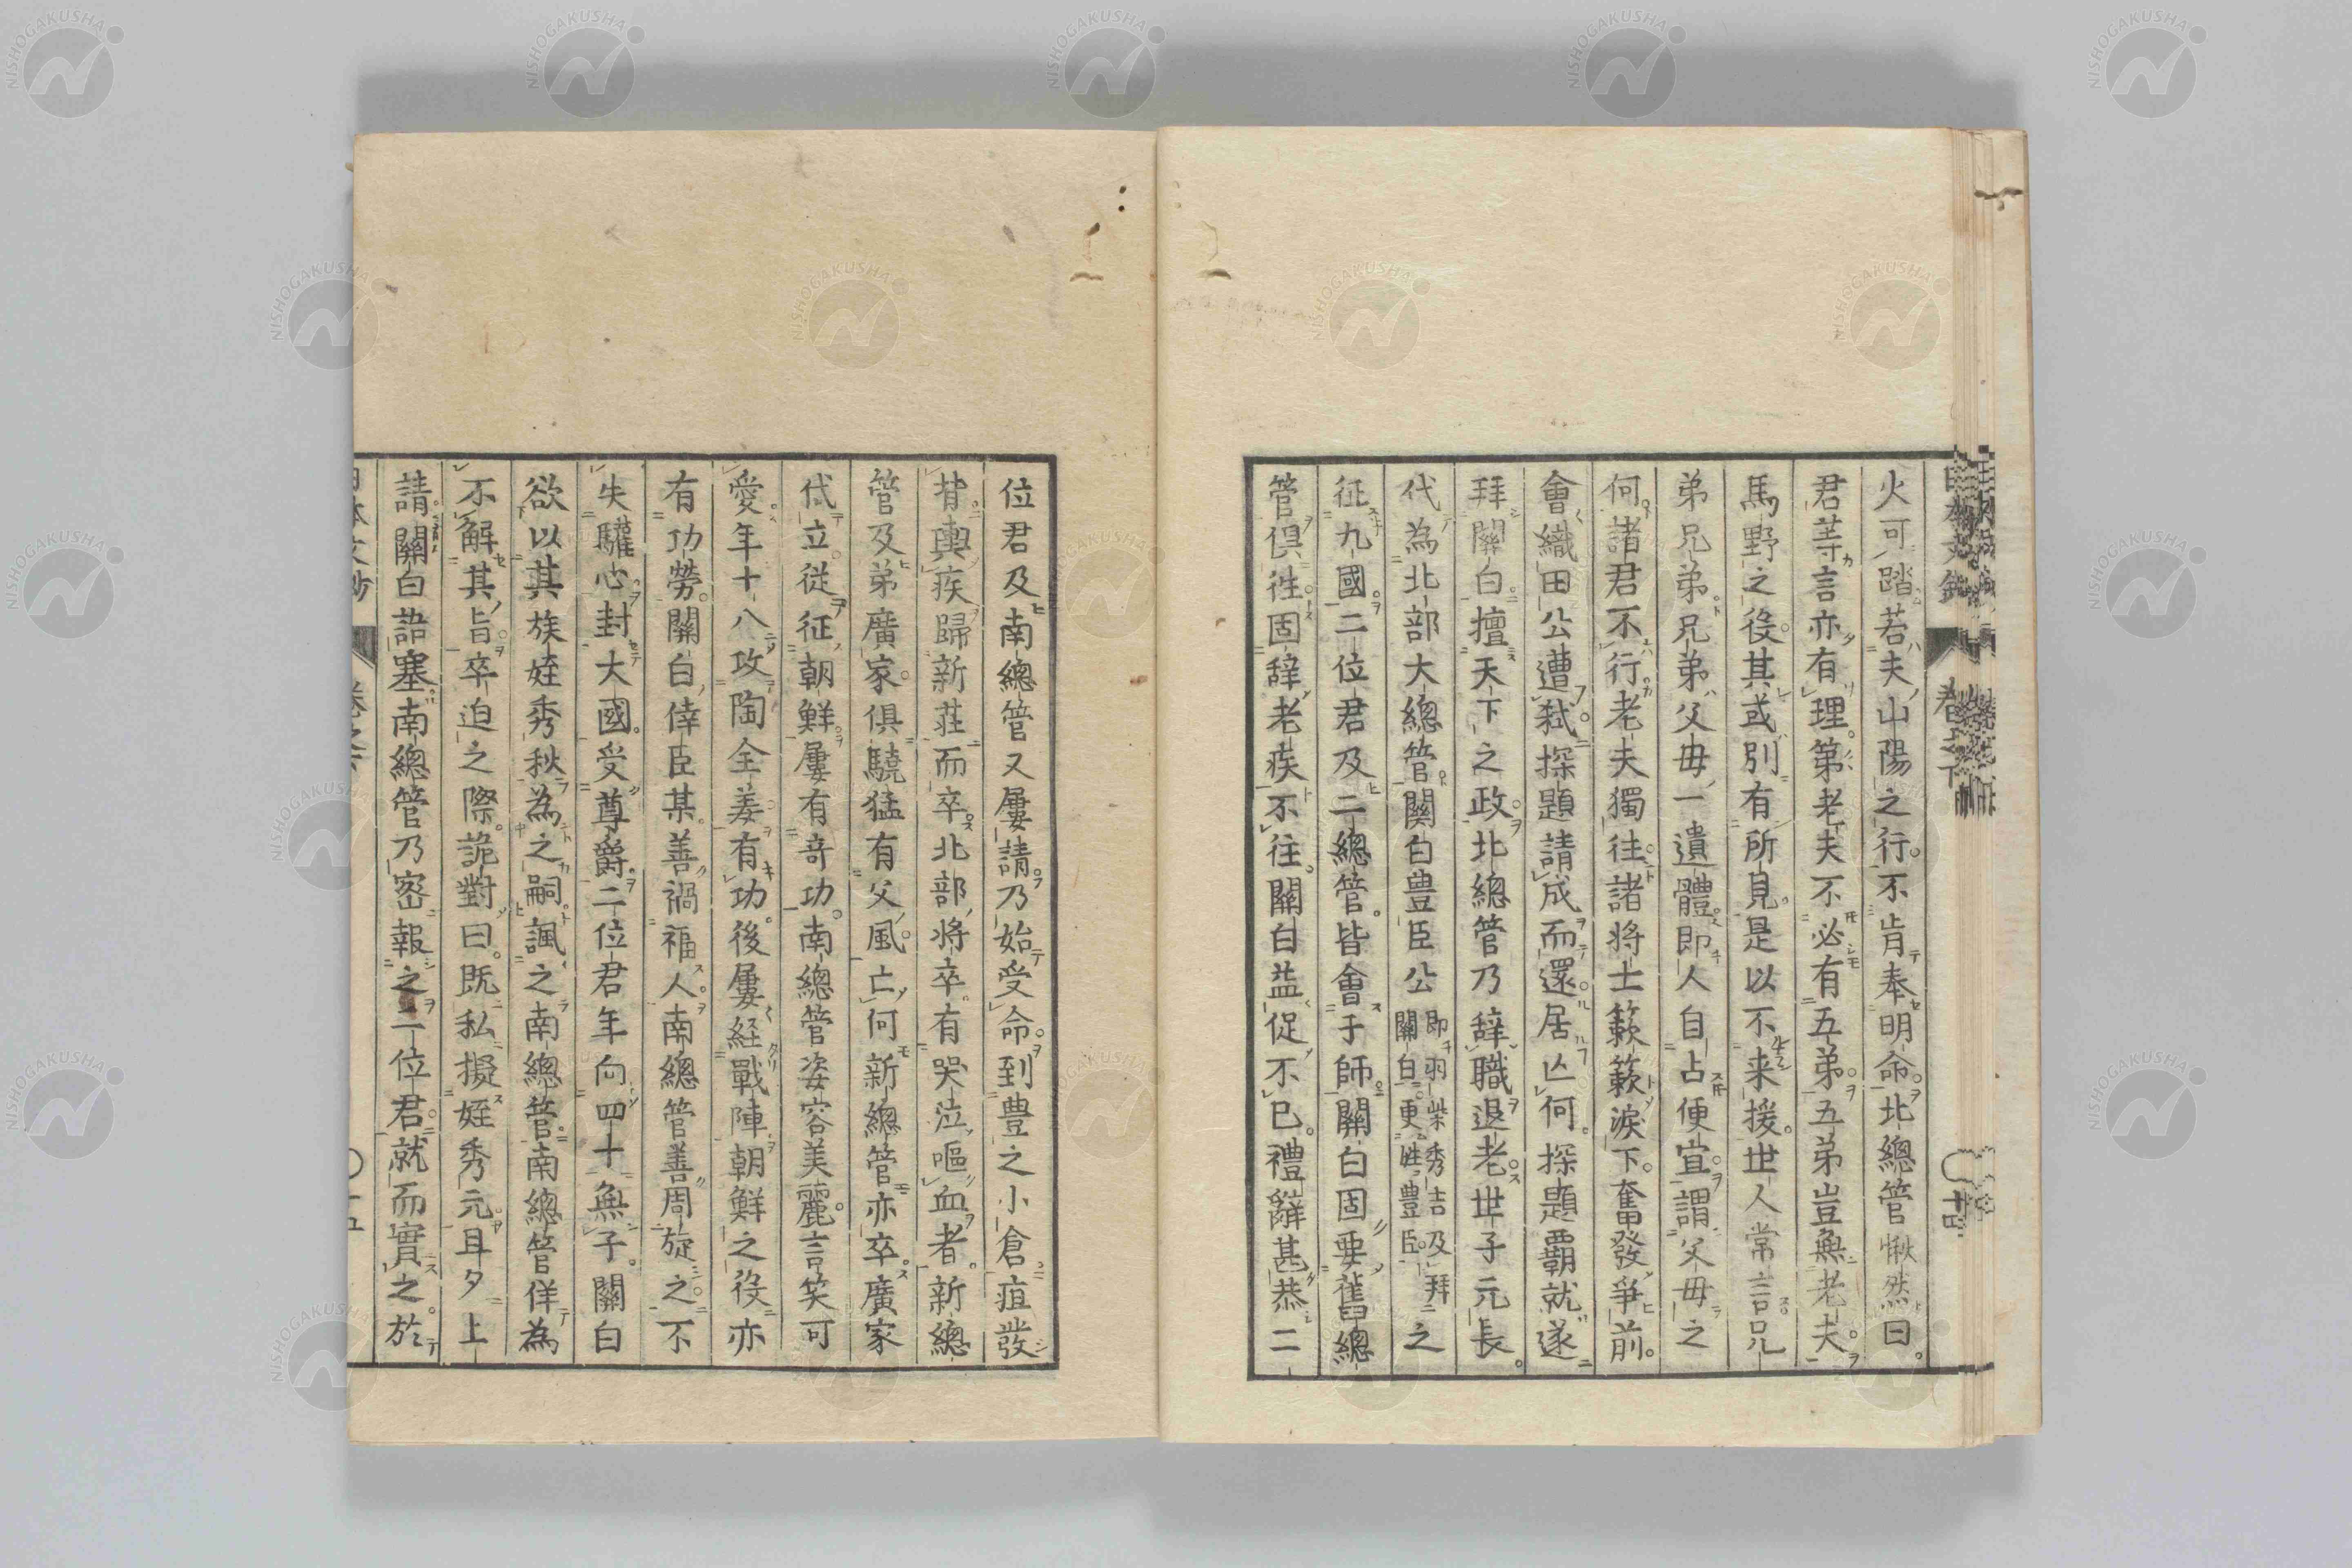 火可踏若夫山陽之行不肯奉明命北總管愀然曰
君等言亦有理第老夫不必有五弟五弟豈無老夫
馬野之役其或別有所見是以不来援世人常言兄
弟兄弟兄弟父毋一遺體即人自占便宜謂父毋之
何諸君不行老夫獨往諸將士簌簌淚下奮發爭前
會織田公遭弑探題請成而還居亾何探題覇就遂
拜關白擅天下之政北總管乃辞職退老世子元長
代為北部大總管關白豊臣公即羽柴秀吉及拜關白更姓豊臣之
征九國二位君及二總管皆會于師關白固要舊總
管俱徃固辞老疾不往關白益促不已禮辭甚恭二
位君及南總管又屢請乃始受命到豊之小倉疽發
背輿疾歸新莊而卒北部將卒有哭泣嘔血者新總
管及弟廣家俱驍猛有父風亡何新總管亦卒廣家
代立從征朝鮮屢有竒功南總管姿容美麗言笑可
愛年十八攻陶全姜有功後屢経戰陣朝鮮之役亦
有功勞關白倖臣某善禍福人南總管善周旋之不
失驩心封大國受尊爵二位君年向四十無子關白
欲以其族姪秀秋為之嗣諷之南總管南總管佯為
不解其旨卒迫之際詭對曰既私擬姪秀元耳夕上
請關白語塞南總管乃密報之二位君就而實之於